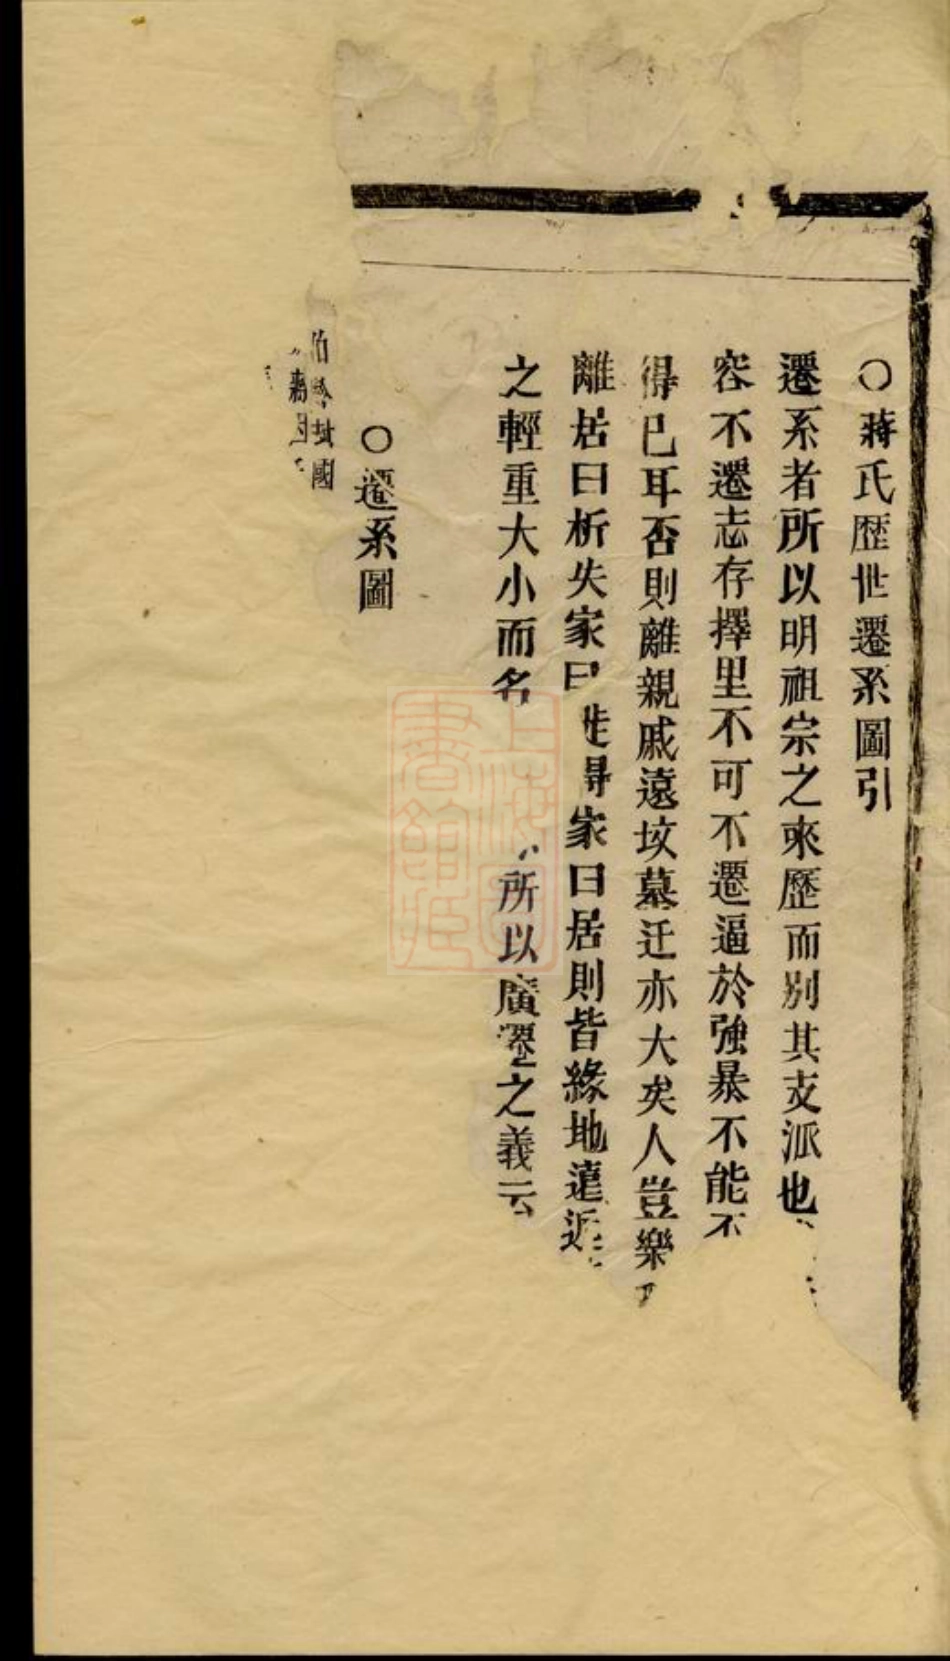 ○蔣氏歴世遷系圖引
遷系者所以明祖宗之來歷而别其支派也
容不遷志存擇里不可不遷逼於強暴不能不
得已耳否則離親戚遠坟墓迁亦大矣人豈樂
離居曰析失家曰徙得家曰居則皆緣地遠近
之輕重大小而名 所以廣遷之義云
○遷系圖
伯齡 國
上海圖書館藏